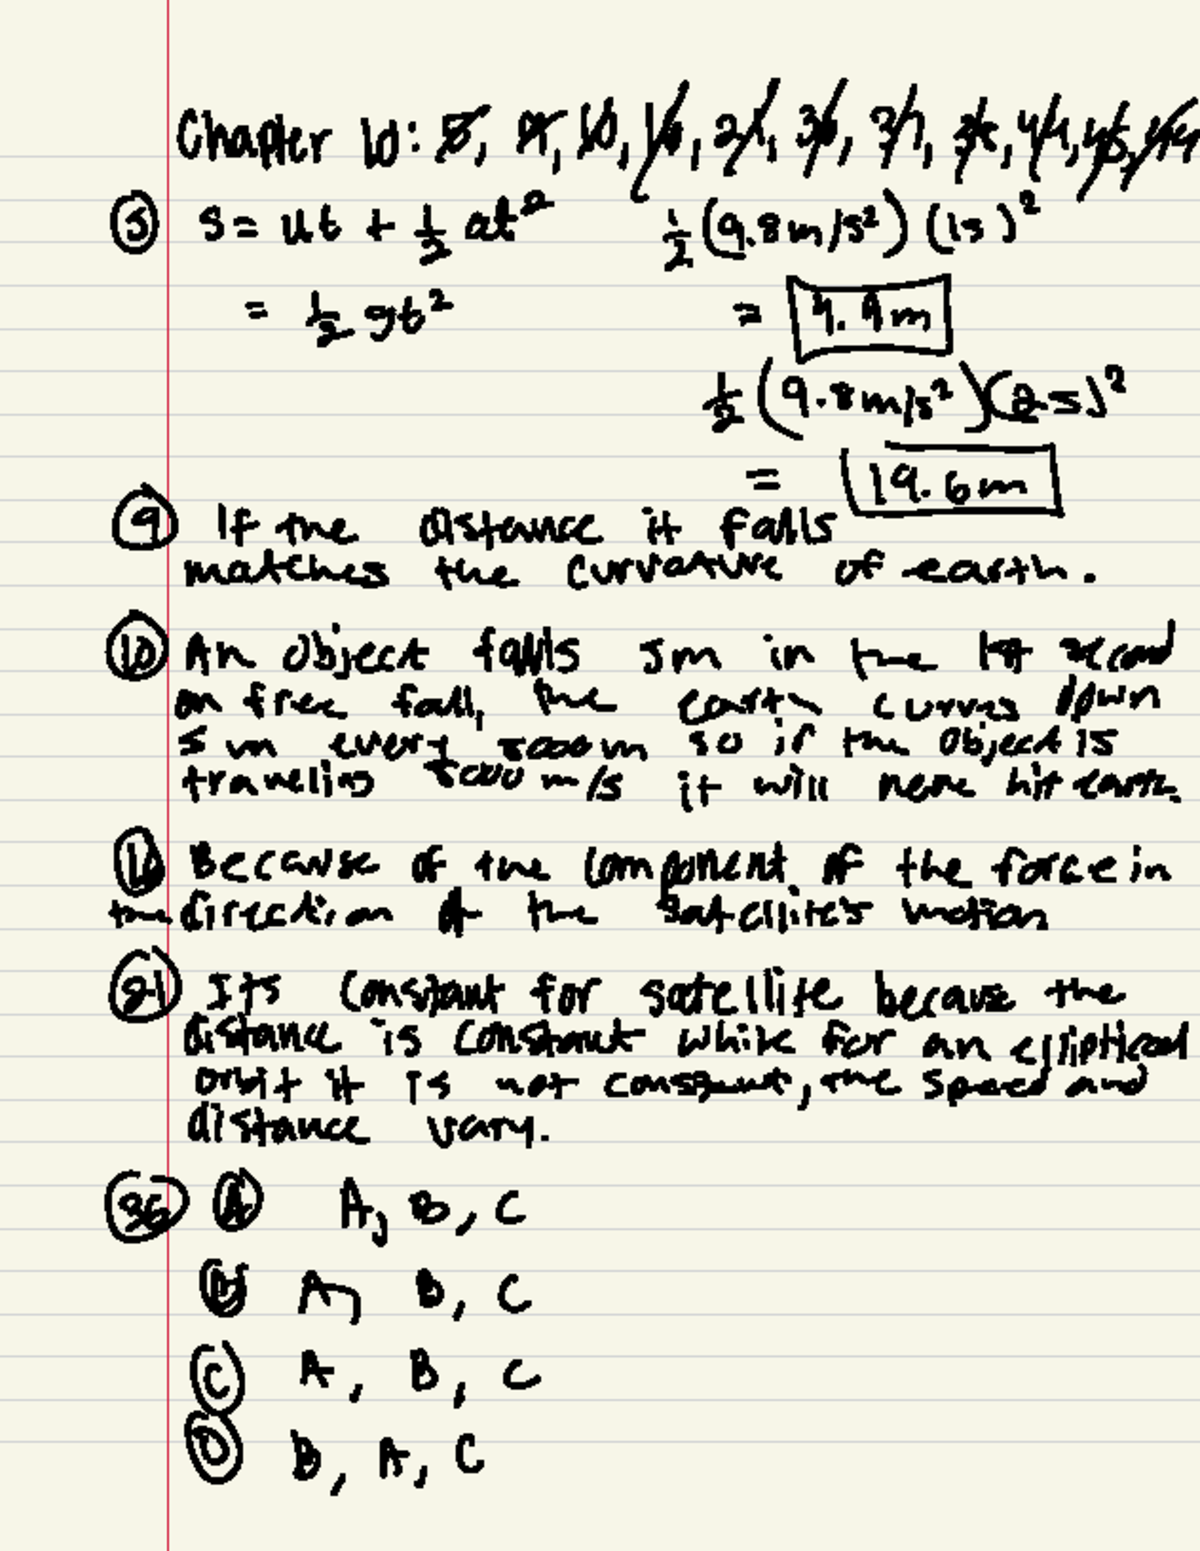 Chapter 10: 5, 9, 10, 16, 21, 36, 37, 38, 44, 45,
⑤ s = ut + 1/2 at² 1/2 (9.8m/s²) (1s)²
= 1/2 gt² = 4.9m
1/2 (9.8m/s²)(2s)²
= 19.6m
⑨ If the distance it falls
matches the curvature of earth.
⑩ An object falls 5m in the 1st second
on free fall, the earth curves down
5 m every 8000m so if the object is
traveling 8000 m/s it will never hit earth.
⑯ Because of the component of the force in
the direction of the satellite's motion
㉑ Its constant for satellite because the
distance is constant while for an elliptical
orbit it is not constant, the speed and
distance vary.
㊱ Ⓐ A, B, C
Ⓑ A, B, C
Ⓒ A, B, C
Ⓓ B, A, C